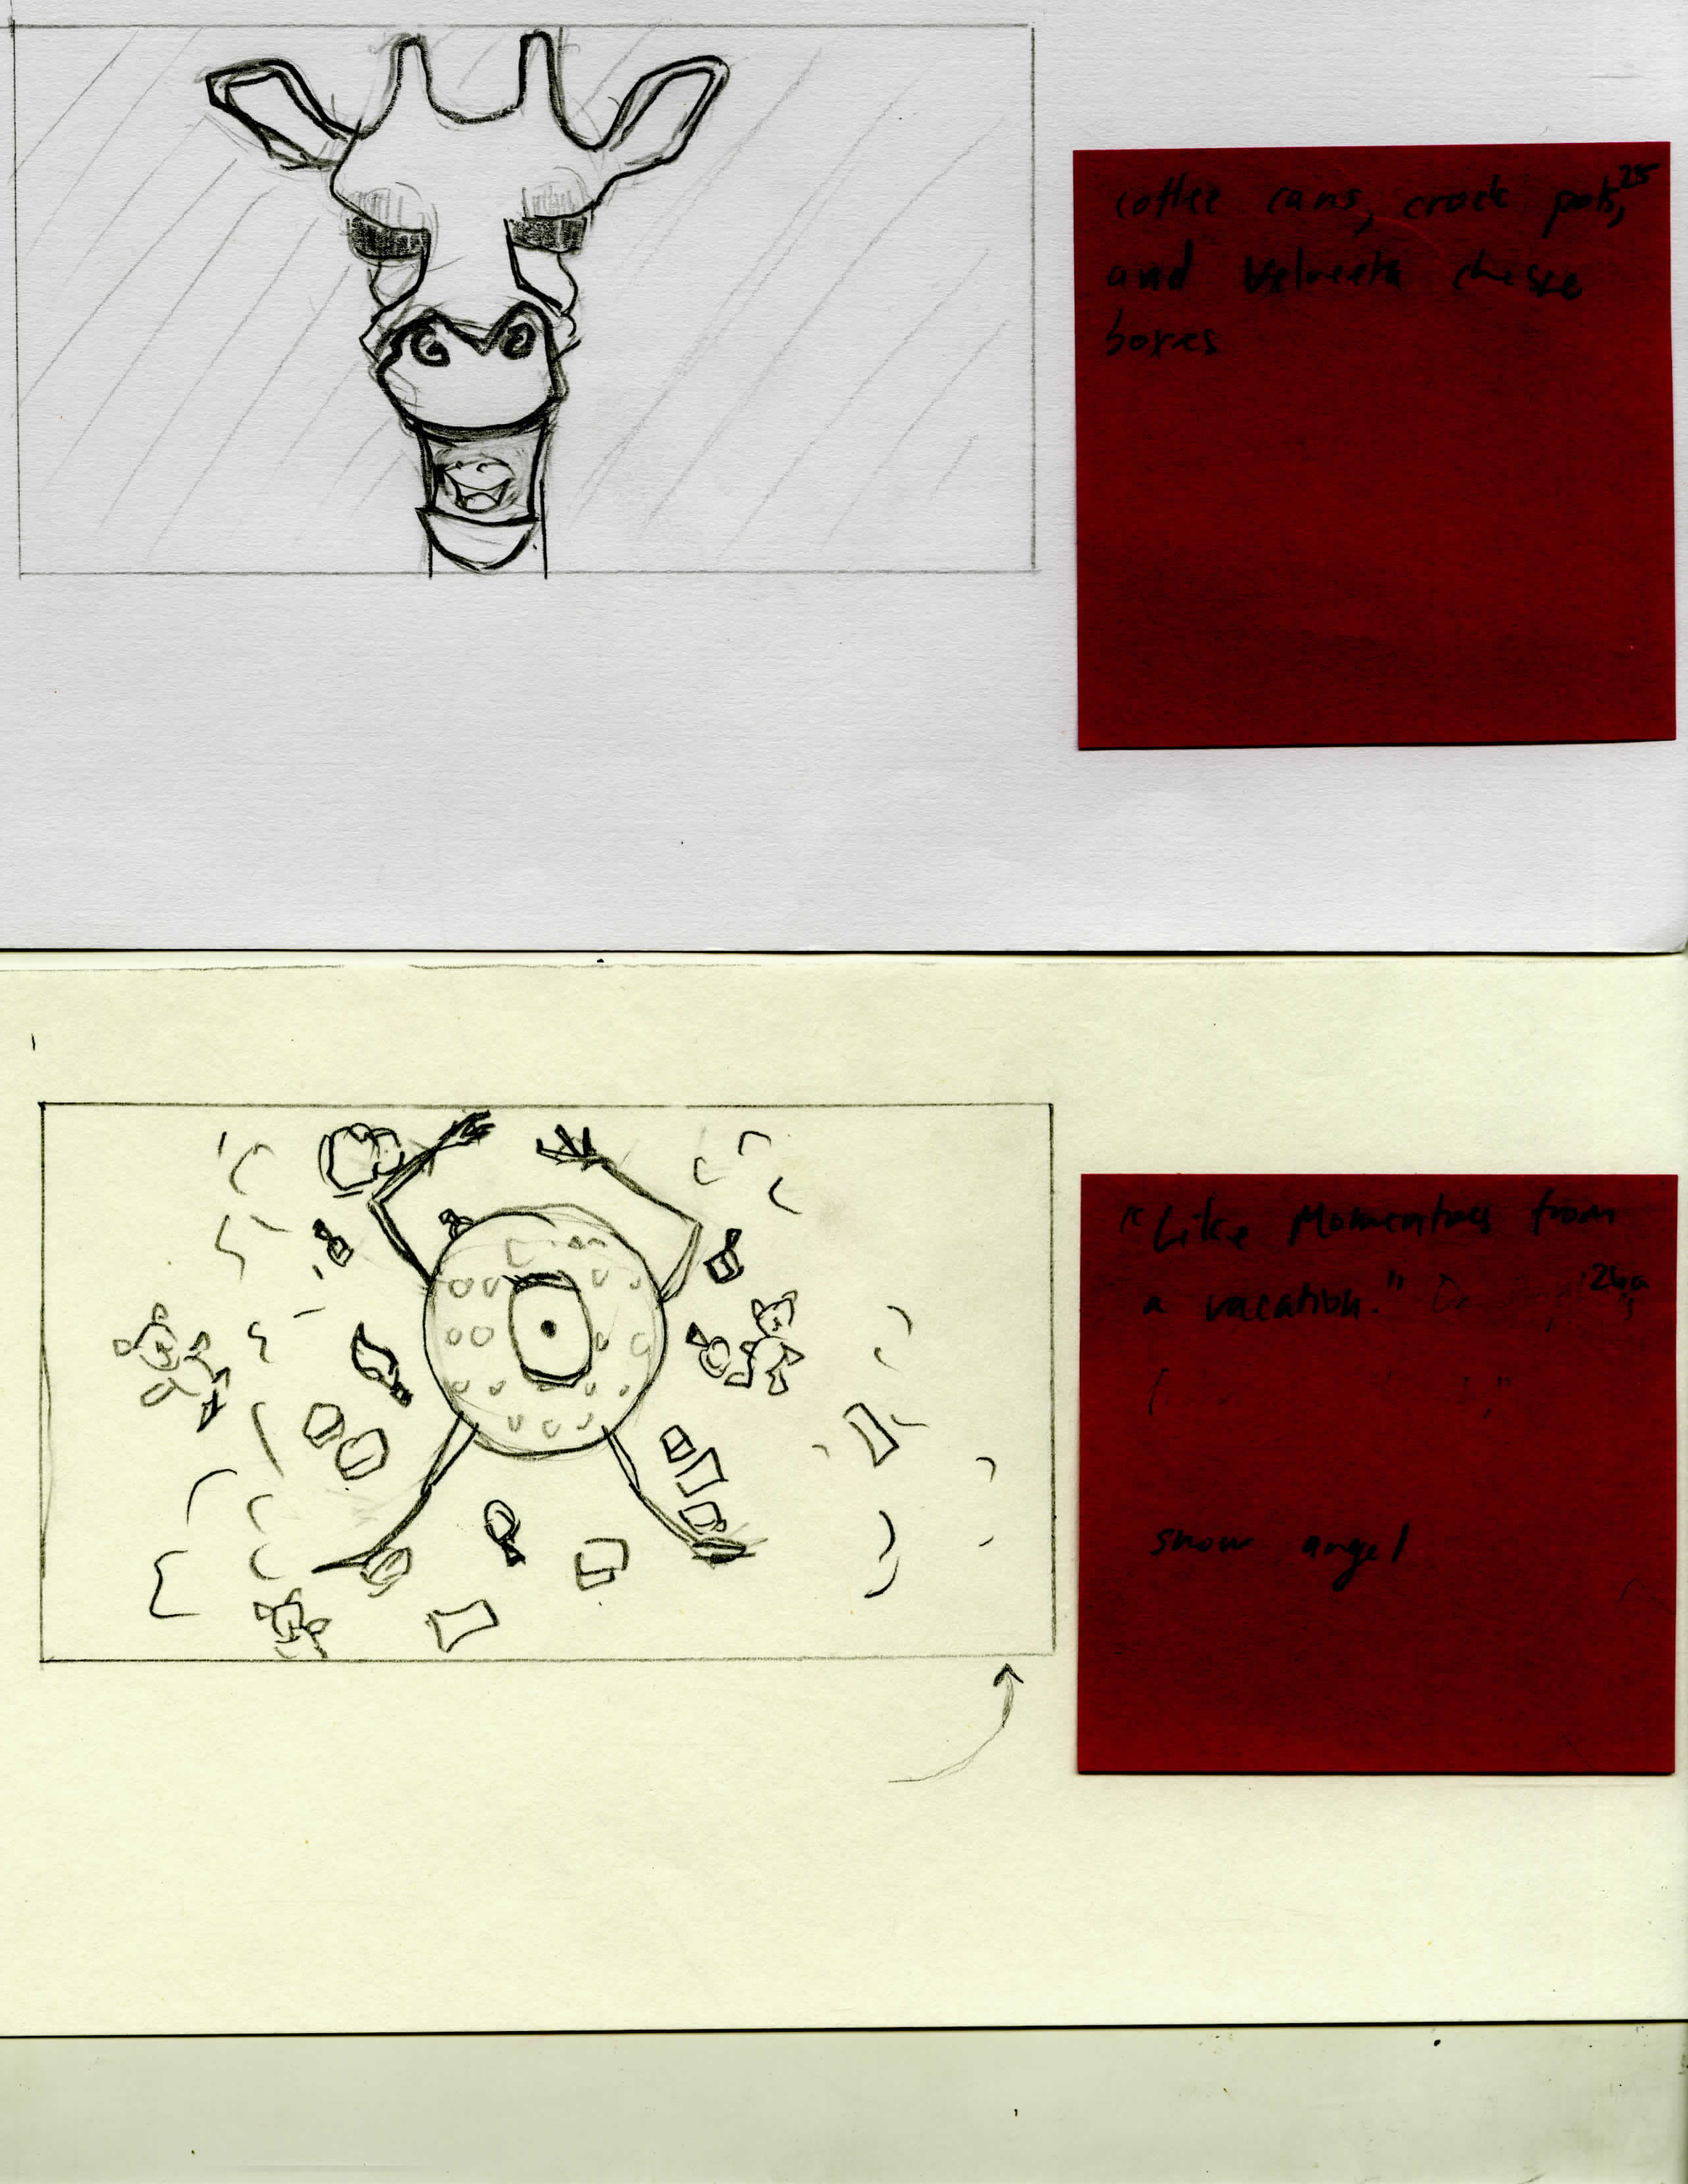 coffee cans, crock pots, 25
and Velveeta cheese
boxes
"Like Momentoes from
a vacation." 26a
snow angel